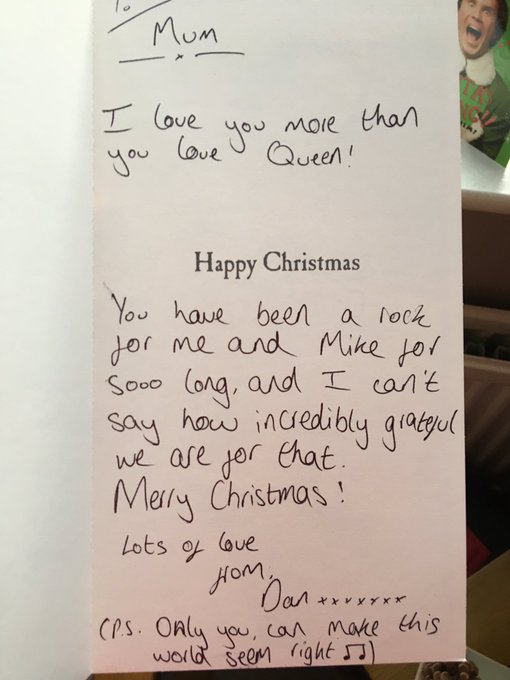 To
Mum
I love you more than
you love Queen!
Happy Christmas
You have been a rock
for me and Mike for
sooo long, and I can't
say how incredibly grateful
we are for that.
Merry Christmas!
Lots of love
from,
Dan xxxxxxx
(P.S. Only you, can make this
world seem right ♫)